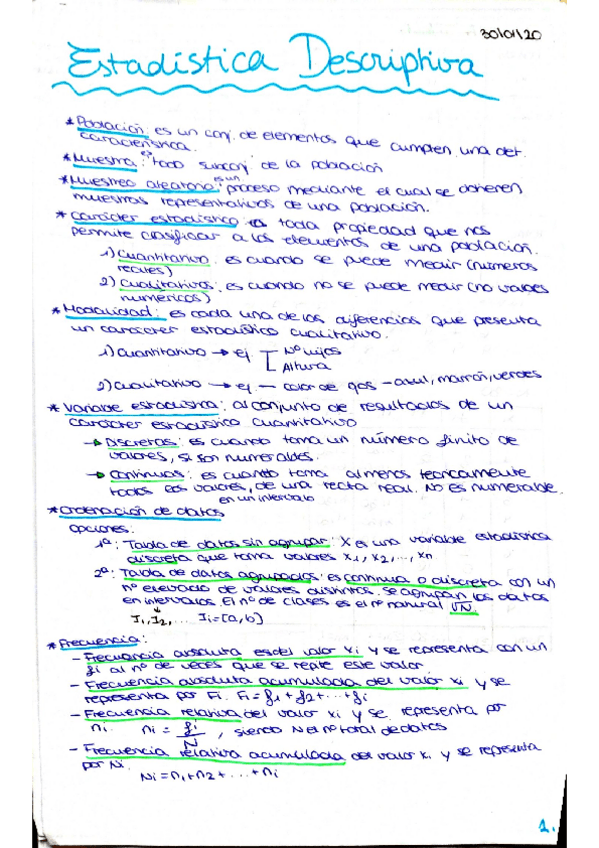 30/01/20
Estadística Descriptiva
* Población: es un conj. de elementos que cumplen una det.
característica.
* Muestra: es todo subconj. de la población
* Muestreo aleatorio: es un proceso mediante el cual se obtienen
muestras representativas de una población.
* Carácter estadístico: es toda propiedad que nos
permite clasificar a los elementos de una población.
1) Cuantitativo: es cuando se puede medir (números
reales)
2) Cualitativos: es cuando no se puede medir (no valores
numéricos)
* Modalidad: es cada una de las diferencias que presenta
un carácter estadístico cualitativo.
1) Cuantitativo → ej Nº hijos
Altura
2) Cualitativo → ej — color de ojos - azul, marrón, verdes
* Variable estadística: al conjunto de resultados de un
carácter estadístico cuantitativo
→ Discretas: es cuando toma un número finito de
valores, si son numerables.
→ Continuas: es cuando toma al menos teóricamente
todos los valores, de una recta real. No es numerable.
en un intervalo
* Ordenación de datos
Opciones:
1ª: Tabla de datos sin agrupar: X es una variable estadística
discreta que toma valores x1, x2, ..., xn.
2ª: Tabla de datos agrupados: es continua o discreta con un
nº elevado de valores distintos. Se agrupan los datos
en intervalos. El nº de clases es el nº natural √N.
I1, I2, ... Ii = [a, b]
* Frecuencia:
- Frecuencia absoluta es del valor xi y se representa con un
fi al nº de veces que se repite este valor.
- Frecuencia absoluta acumulada del valor xi y se
representa por Fi. Fi = f1 + f2 + ... + fi
- Frecuencia relativa del valor xi y se representa por
ni. ni = fi/N, siendo N el nº total de datos
- Frecuencia relativa acumulada del valor xi y se representa
por Ni.
Ni = n1 + n2 + ... + ni
1.